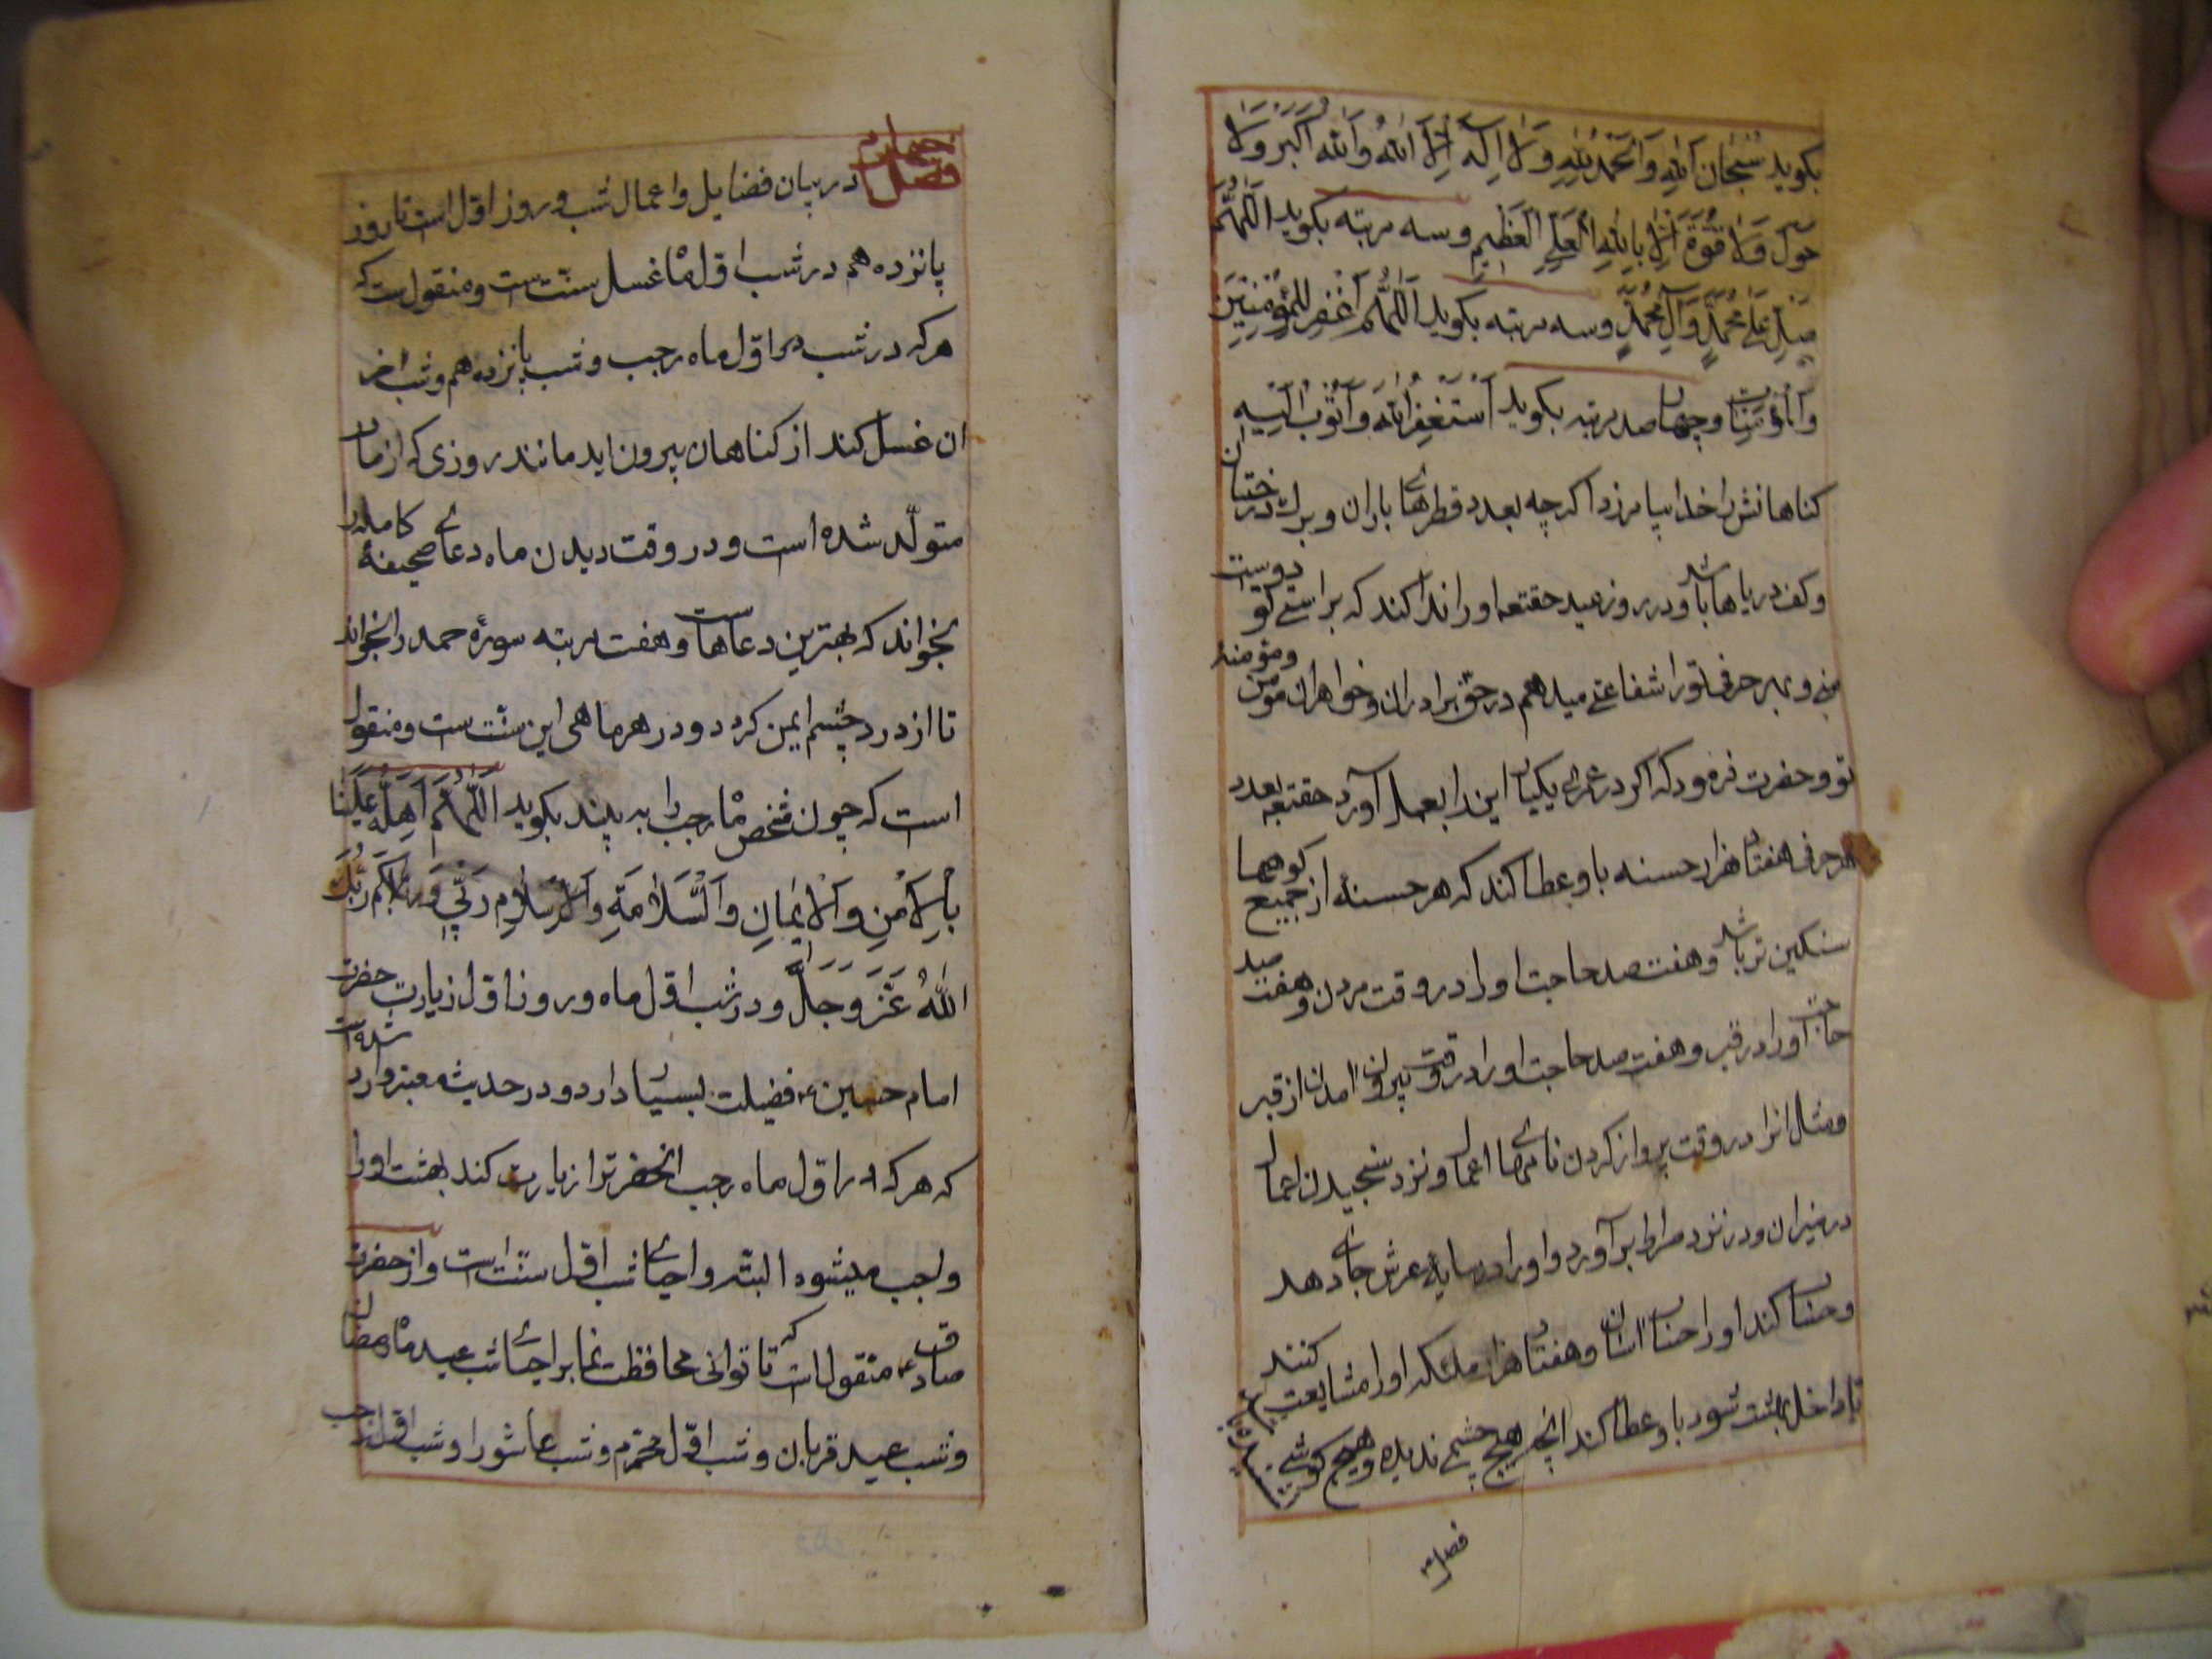 بکوید سُبْحٰانَ اللّٰهِ وَالْحَمْدُ لِلّٰهِ وَلٰا اِلٰهَ اِلَّا اللّٰهُ وَاللّٰهُ اَکْبَرُ وَلٰا
حَوْلَ وَلٰا قُوَّةَ اِلّٰا بِاللّٰهِ الْعَلِیِّ الْعَظٖیمِ وسه مرتبه بکوید اَللّٰهُمَّ
صَلِّ عَلٰی مُحَمَّدٍ وَآلِ مُحَمَّدٍ وسه مرتبه بکوید اَللّٰهُمَّ اغْفِرْ لِلْمُؤْمِنٖینَ
وَالْمُؤْمِنٰاتِ وچهارصد مرتبه بکوید اَسْتَغْفِرُ اللّٰهَ وَاَتُوبُ اِلَیْهِ
کناهانش را خدا بیامرزد اکرچه بعدد قطرهای باران و برك درختان
وکف دریاها باشد ودر روز عید حقتعه او را ندا کند که براستی تو دوست
منی و بهر حرفی تورا شفاعتی میدهم در حق برادران وخواهران مؤمن ومؤمنۀ
تو وحضرت فرمود که اکر در عمری یکبار این را بعمل آورد حقتعه بعدد
هر حرفی هفتاد هزار حسنه باو عطا کند که هر حسنۀ از جمیع کوهها
سنکین تر باشد وهفتصد حاجت او را در وقت مردن وهفت صد
حاجت او را در قبر وهفت صد حاجت او را در وقت بیرون امدن از قبر
ومثل انرا در وقت پرواز کردن نامهای اعمال ونزد سنجیدن اعمال
در میزان ودر نزد صراط برآورد واو را در سایۀ عرش جای دهد
وحساب کند او را حساب اسان وهفتاد هزار ملئکه او را مشایعت کنند
تا داخل بهشت شود باو عطا کند انچه هیچ چشمی ندیده وهیچ کوشی نشنیده
فصل
فصل چهارم در بیان فضایل واعمال شب وروز اول است تا روز
پانزدهم در شب اوّل ماه غسل سنّت ست ومنقولست که
هرکه در شب اوّل ماه رجب وشب پانزدهم وشب اخر
ان غسل کند از کناهان بیرون اید مانند روزی که از مادر
متولّد شده است ودر وقت دیدن ماه دعای صحیفۀ کامله را
بخواند که بهترین دعاهاست وهفت مرتبه سورۀ حمد را بخواند
تا از درد چشم ایمن کردد ودر هر ماهی این سنّت ست ومنقول
است که چون شخص ماه رجب را به بیند بکوید اَللّٰهُمَّ اَهِلَّهُ عَلَیْنٰا
بِالْاَمْنِ وَالْاٖیمٰانِ وَالسَّلٰامَةِ وَالْاِسْلٰامِ رَبّٖی وَرَبُّكَ
اللّٰهُ عَزَّ وَجَلَّ ودر شب اوّل ماه وروز اوّل زیارت حضرت
امام حسین ع فضیلت بسیار دارد ودر حدیث معتبر وارد شده است
که هرکه در اوّل ماه رجب انحضرترا زیارت کند بهشت او را
واجب میشود البتّه واحیای شب اوّل سنّت است واز حضرت
صادق ع منقول است که تا توانی محافظت نما بر احیای شب عید ماه رمضان
وشب عید قربان وشب اوّل محرّم وشب عاشورا وشب اوّل رجب